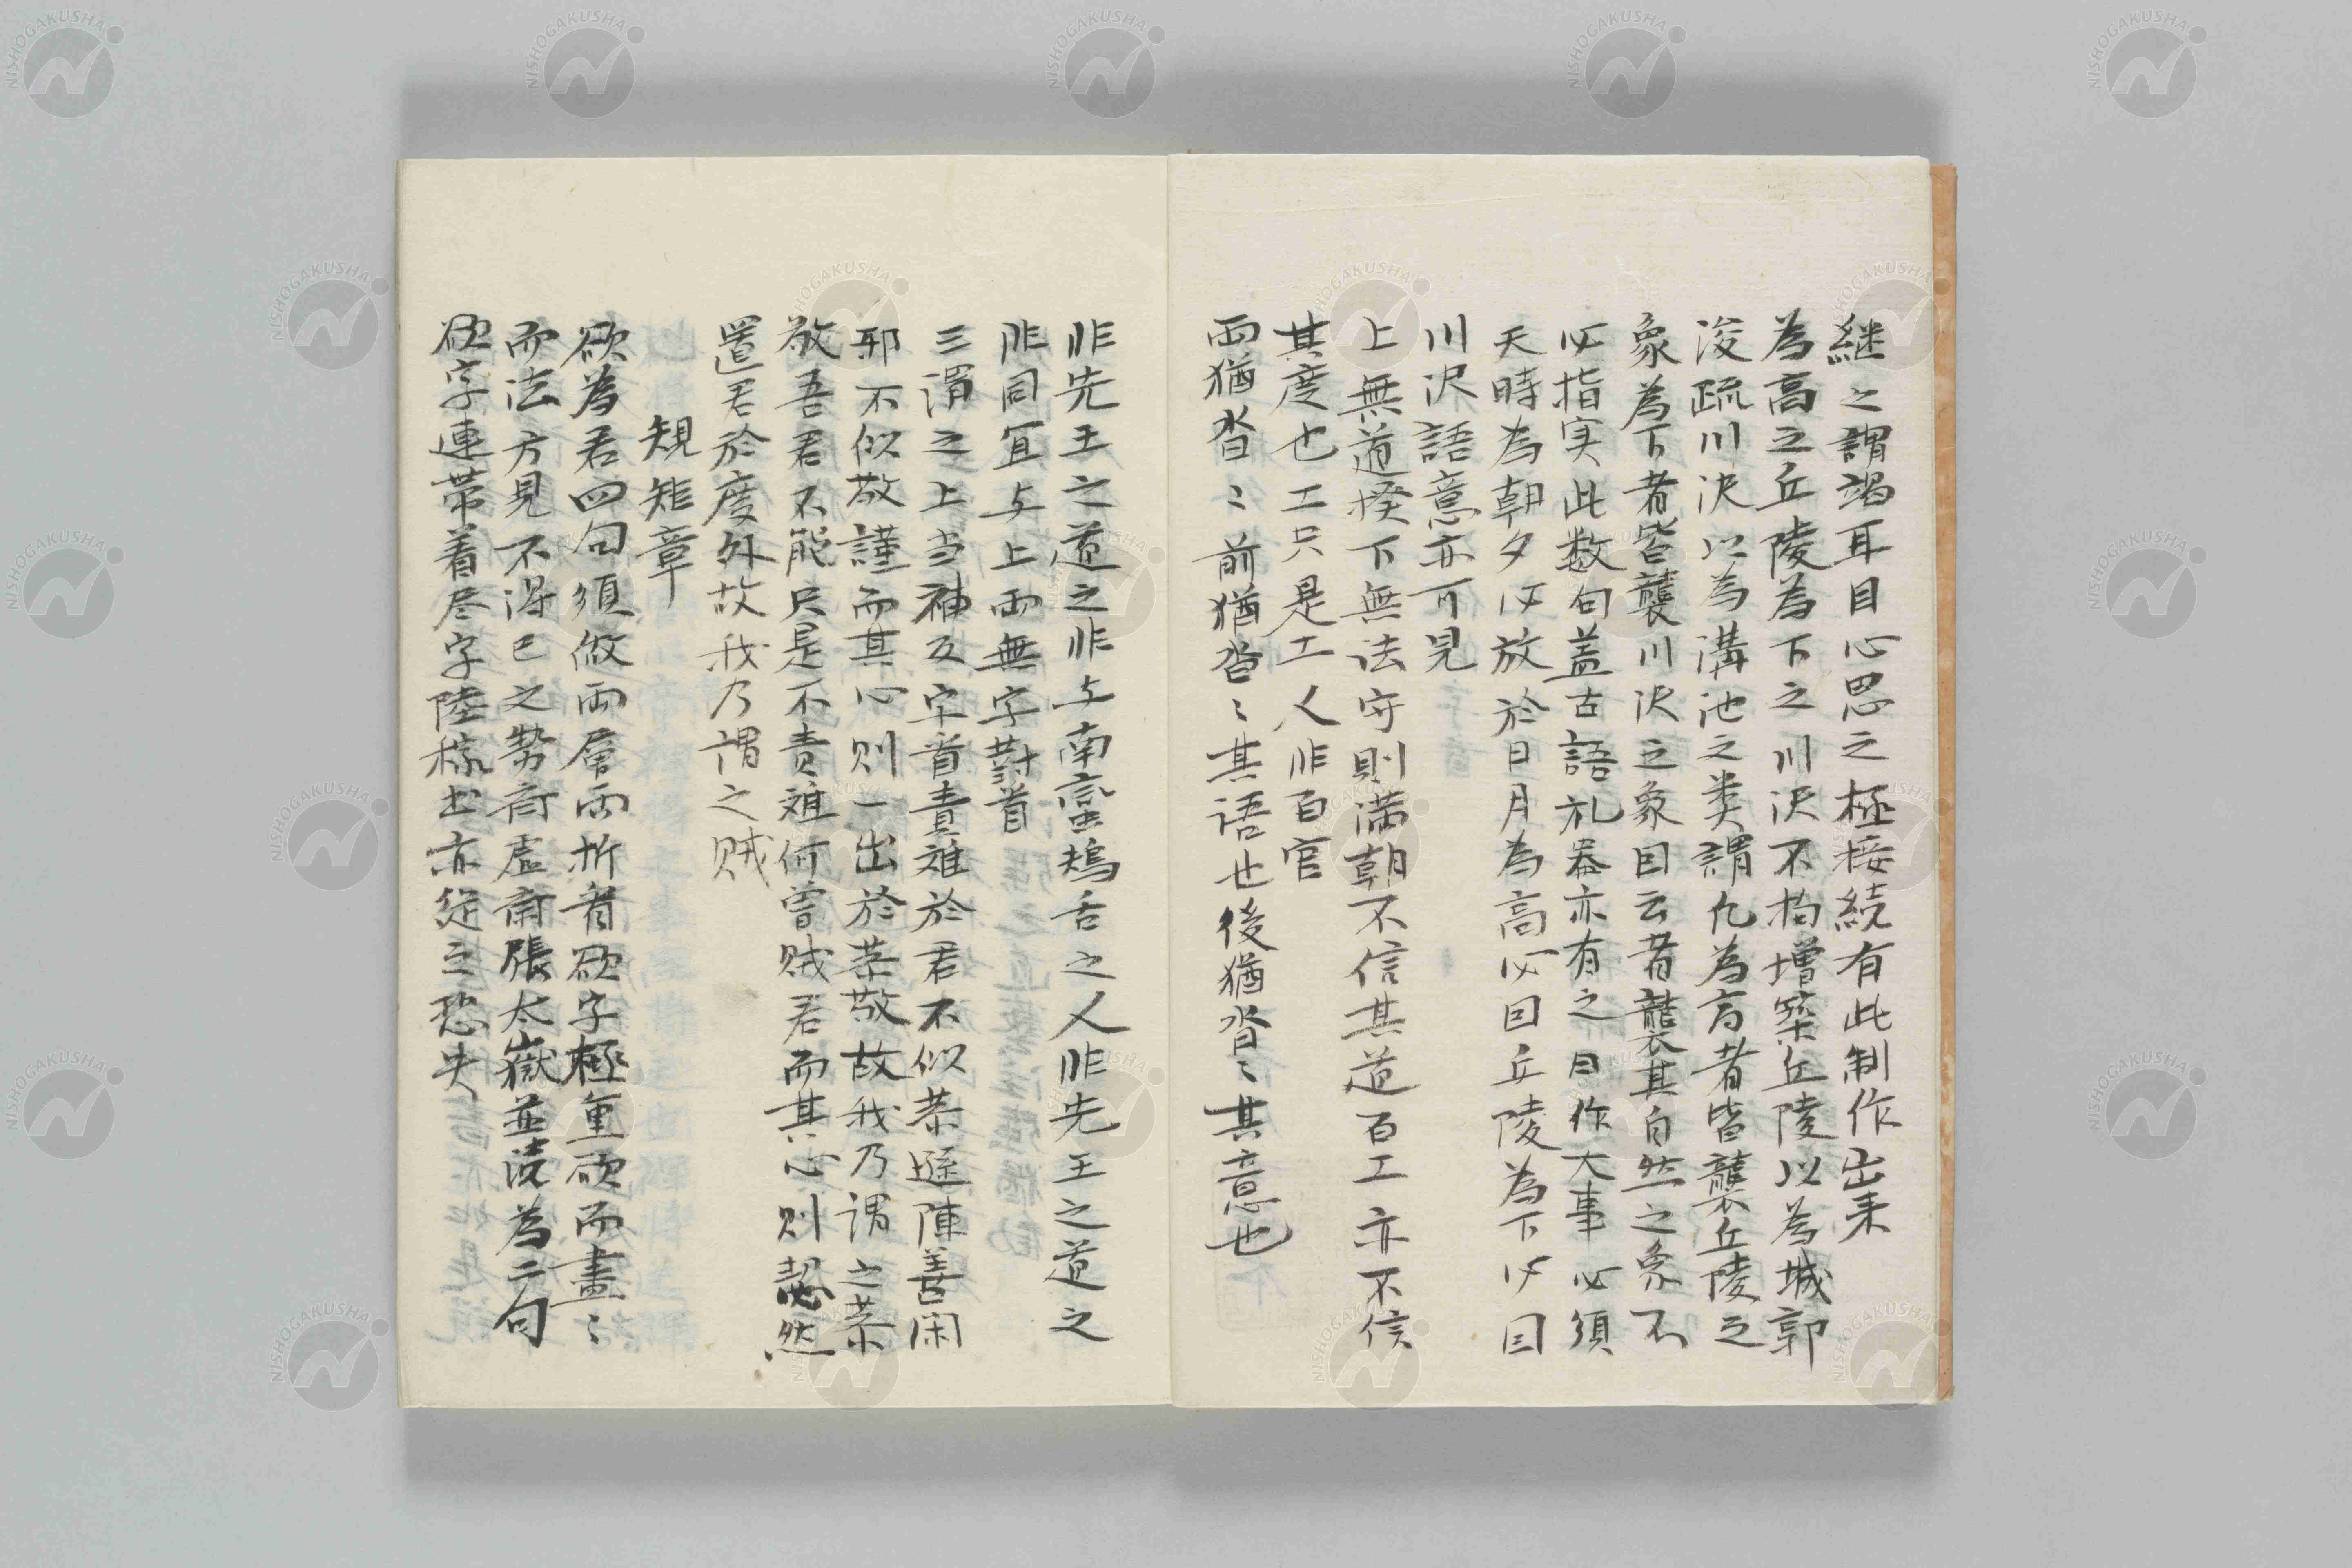 継之謂竭耳目心思之極接続有此制作出来
為高之丘陵為下之川沢不拘増築丘陵以為城郭
浚疏川沢以為溝池之类謂凢為高者皆襲丘陵之
象為下者皆襲川沢之象因云者襲其自然之象不
必指実此数句盖古語礼器亦有之曰作大事必須
天時為朝夕必放於日月為高必因丘陵為下必因
川沢語意亦可見
上無道揆下無法守則満朝不信其道百工亦不信
其度也工只是工人非百官
両猶沓〻前猶沓〻其語也後猶沓〻其意也
非先王之道之非与南蛮鴂舌之人非先王之道之
非同冝与上両無字対首
三謂之上当補及字首責難於君不似恭遜陳善閑
邪不似敬謹而其心則一出於恭敬故我乃謂之恭
敬吾君不能只是不責难何曽賊君而其心則恝然
置君於度外故我乃謂之賊
規矩章
欲為君四句須做両層両折看欲字極重欲而尽〻
而法方見不得已之勢商虚斎張太嶽並読為二句
欲字連帯着尽字陸稼書亦従之恐失